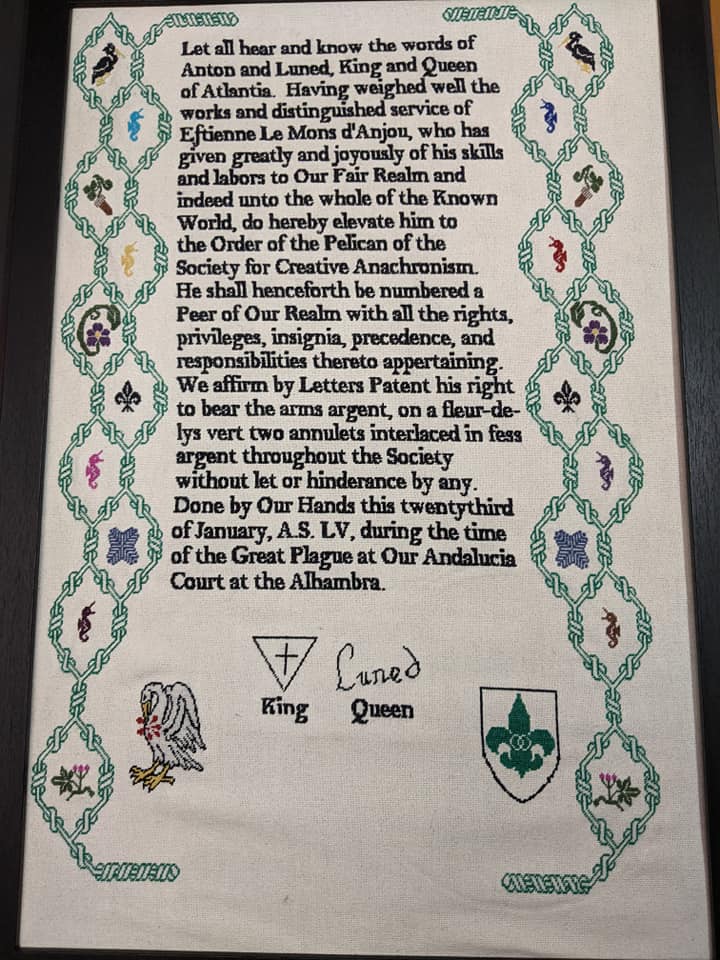 Let all hear and know the words of
Anton and Luned, King and Queen
of Atlantia. Having weighed well the
works and distinguished service of
Estienne Le Mons d'Anjou, who has
given greatly and joyously of his skills
and labors to Our Fair Realm and
indeed unto the whole of the Known
World, do hereby elevate him to
the Order of the Pelican of the
Society for Creative Anachronism.
He shall henceforth be numbered a
Peer of Our Realm with all the rights,
privileges, insignia, precedence, and
responsibilities thereto appertaining.
We affirm by Letters Patent his right
to bear the arms argent, on a fleur-de-
lys vert two annulets interlaced in fess
argent throughout the Society
without let or hinderance by any.
Done by Our Hands this twentythird
of January, A.S. LV, during the time
of the Great Plague at Our Andalucia
Court at the Alhambra.
Luned
King Queen